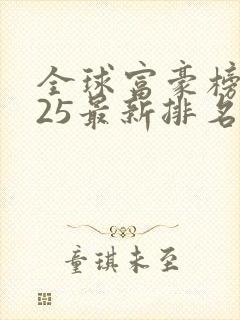 全球富豪榜
25最新排名
童琪未至